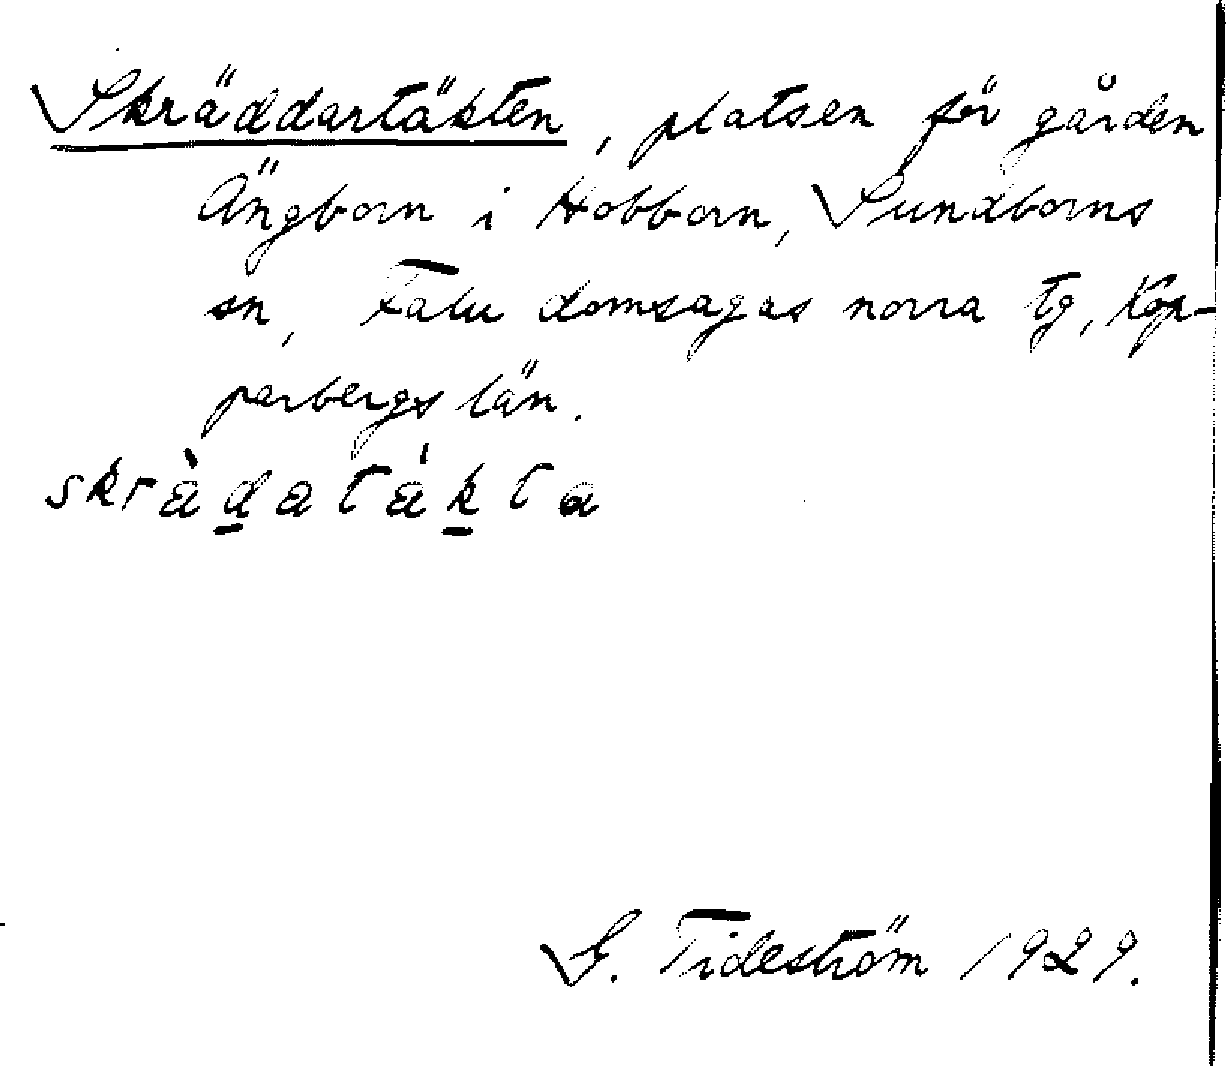 Skräddartäkten, platsen för gården
Ängborn i Hobborn, Sundborns
sn, Falu domsagas norra tg, Kop-
parbergs län.
skrä̀da tä́kta
G. Tideström 1929.